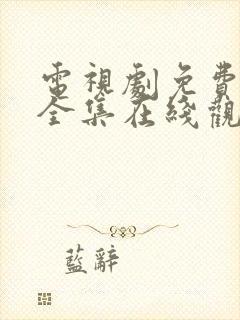 電視劇免費
全集在綫觀
藍辭